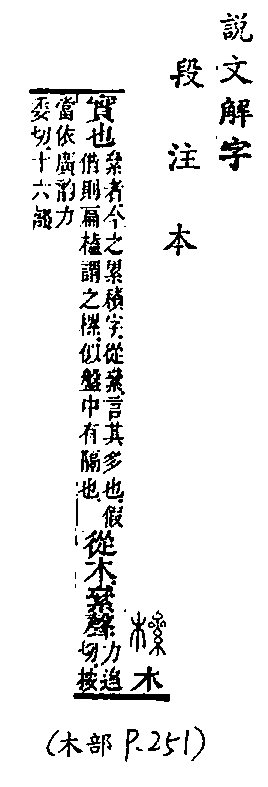 説文解字
段注本
樏 木
實也
絫者今之累積字,從絫言其多也,假
借則扁榼謂之樏,似盤中有隔也,
從木,絫聲,
力追
切,按
當依廣韵力
委切,十六部
(木部 P.251)